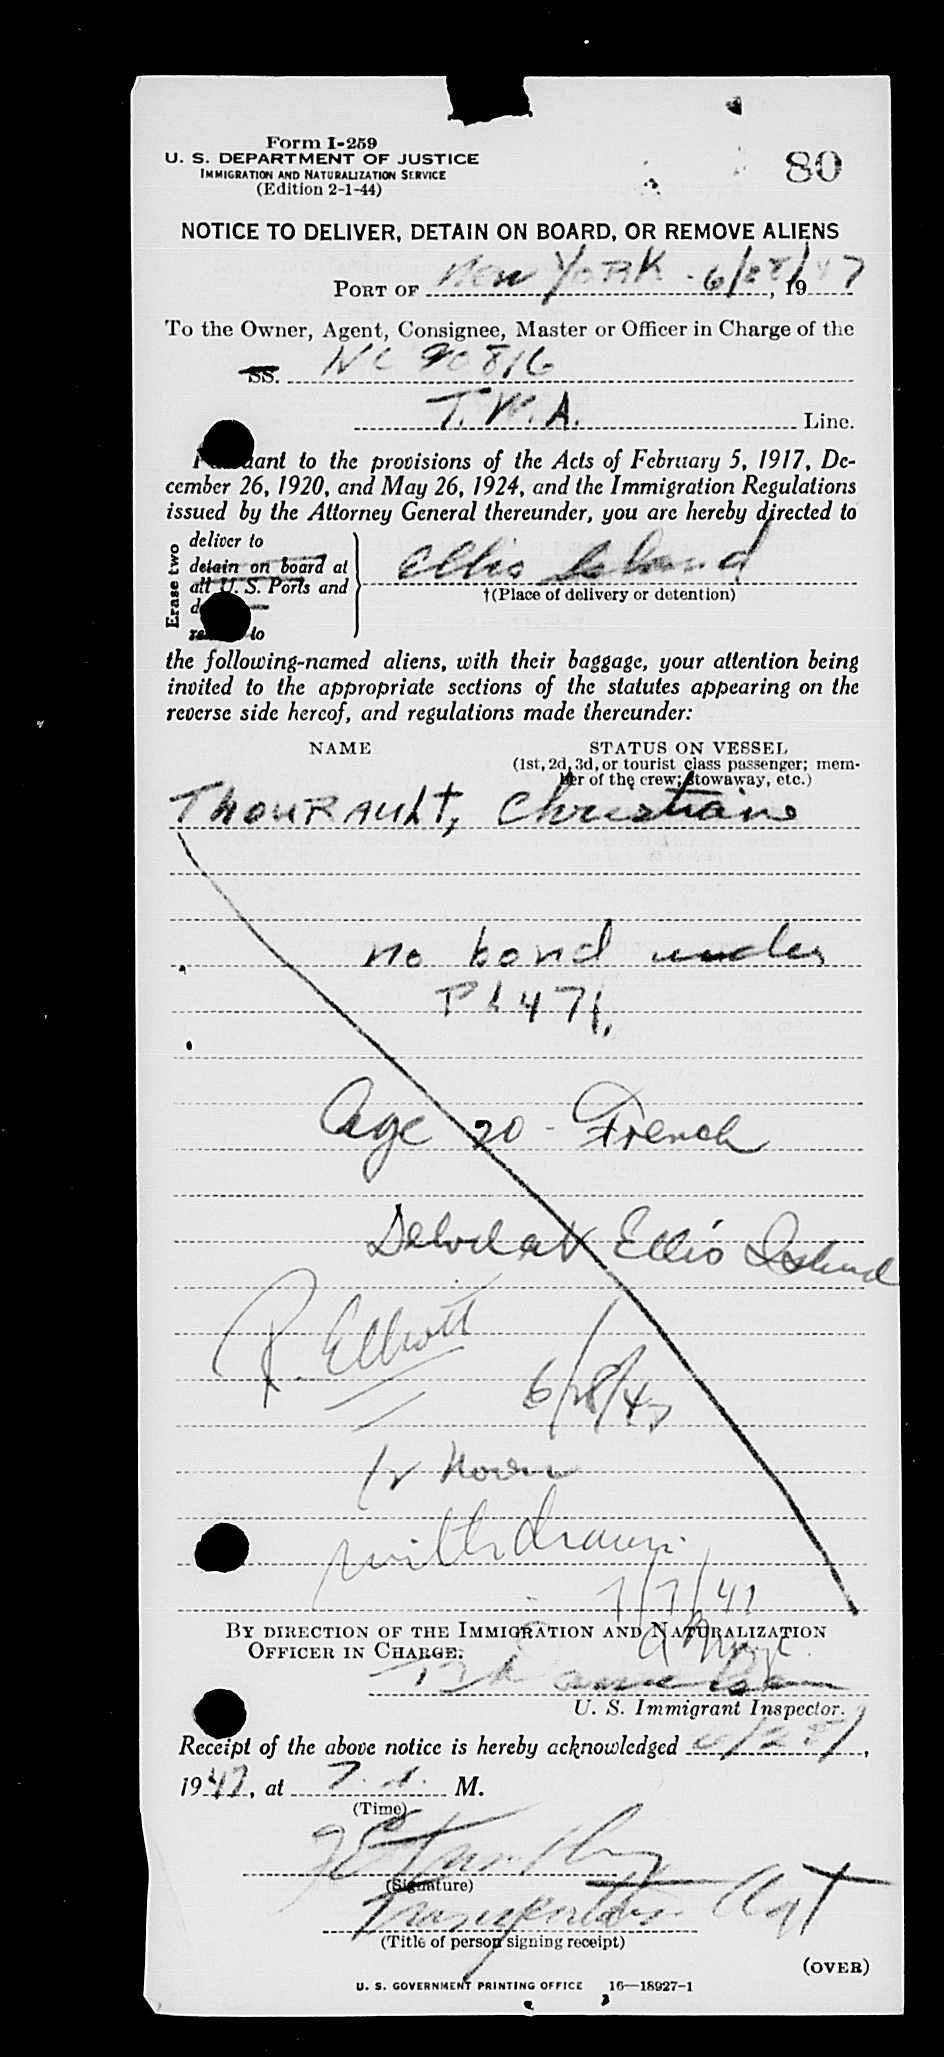 Form I-259
U. S. DEPARTMENT OF JUSTICE
IMMIGRATION AND NATURALIZATION SERVICE
(Edition 2-1-44)
80
NOTICE TO DELIVER, DETAIN ON BOARD, OR REMOVE ALIENS
PORT OF New York - 6/28/, 1947
To the Owner, Agent, Consignee, Master or Officer in Charge of the
SS. NC 90816
T.W.A. Line.
Pursuant to the provisions of the Acts of February 5, 1917, De-
cember 26, 1920, and May 26, 1924, and the Immigration Regulations
issued by the Attorney General thereunder, you are hereby directed to
Erase two
deliver to
detain on board at
all U. S. Ports and
to
Ellis Island
†(Place of delivery or detention)
the following-named aliens, with their baggage, your attention being
invited to the appropriate sections of the statutes appearing on the
reverse side hereof, and regulations made thereunder:
NAME
STATUS ON VESSEL
(1st, 2d, 3d, or tourist class passenger; mem-
ber of the crew; stowaway, etc.)
THOURAULT, Christiane
no bond under
PL 471.
Age 20 - French
Ellis Island
R. Elliott
6/28/47
12 Noon
withdrawn
7/7/47
BY DIRECTION OF THE IMMIGRATION AND NATURALIZATION
OFFICER IN CHARGE:
U. S. Immigrant Inspector.
Receipt of the above notice is hereby acknowledged 6/28/,
1947, at 7. A. M.
(Time)
(Signature)
Transportation Agt
(Title of person signing receipt)
(OVER)
U. S. GOVERNMENT PRINTING OFFICE 16—18927-1